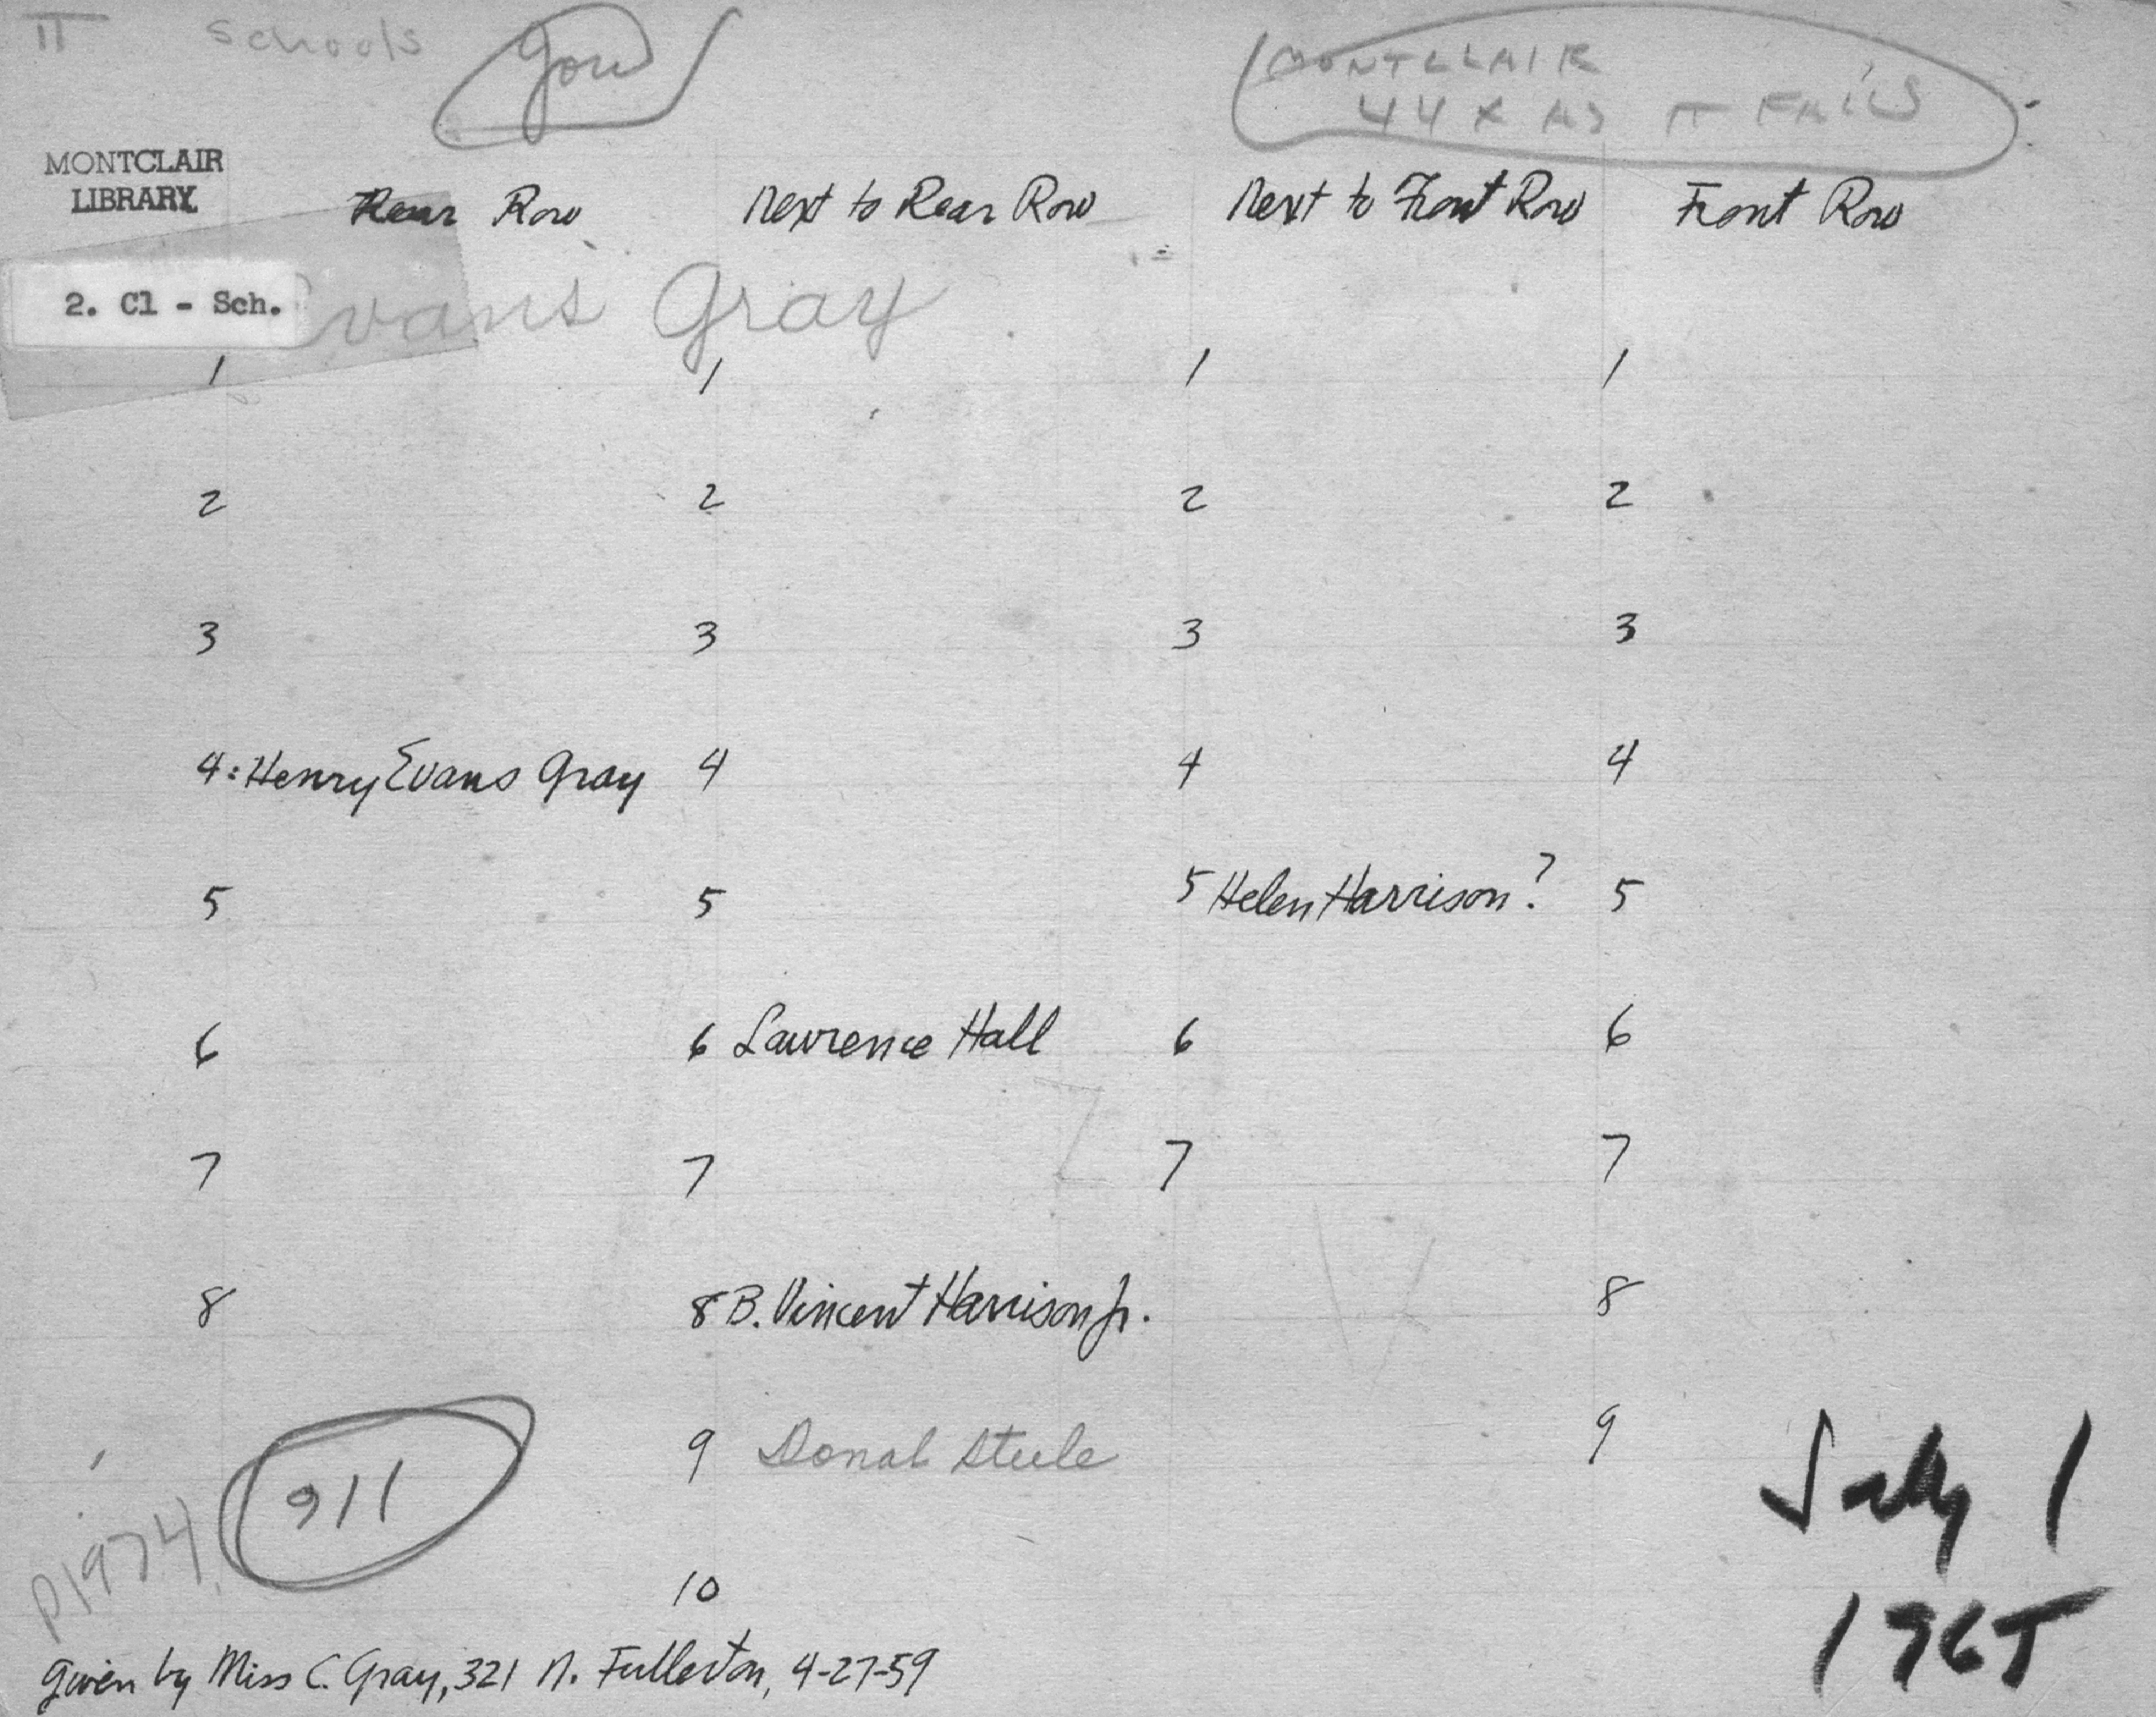 II Schools Gow
MONTCLAIR
44 X AS IT FALLS
MONTCLAIR
LIBRARY
Rear Row Next to Rear Row Next to Front Row Front Row
2. Cl - Sch.
Evans Gray
1 1 1 1
2 2 2 2
3 3 3 3
4: Henry Evans Gray 4 4 4
5 5 5 Helen Harrison? 5
6 6 Lawrence Hall 6 6
7 7 7 7
8 8 B. Vincent Harrison Jr. 8
9 Donal Steele 9
911
P1974
10
July 1
1965
Given by Miss C. Gray, 321 N. Fullerton, 4-27-59